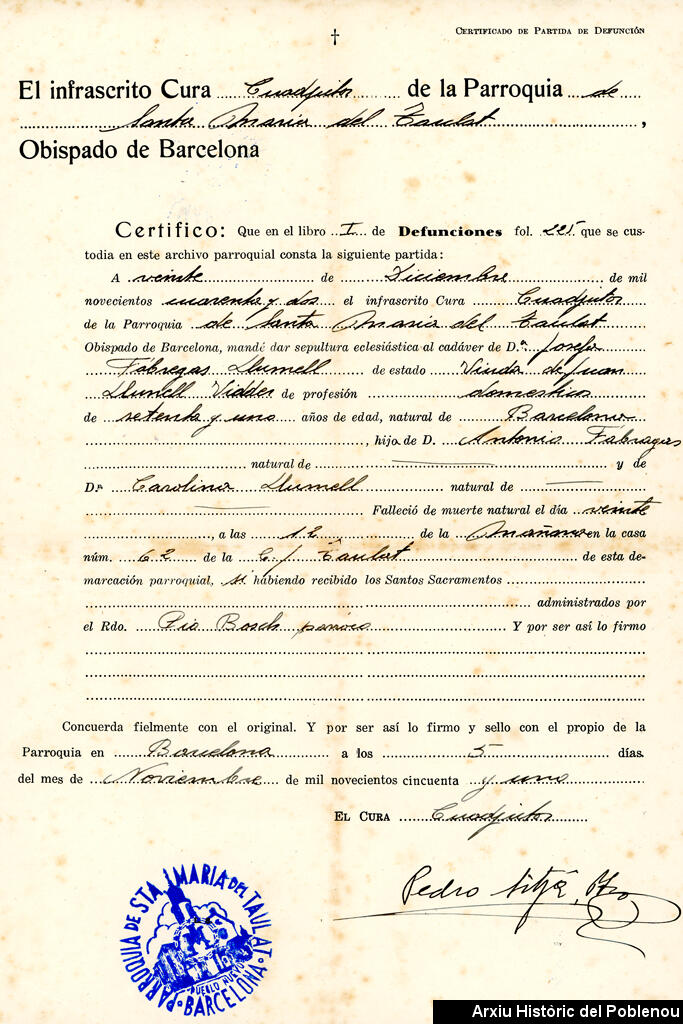 †
CERTIFICADO DE PARTIDA DE DEFUNCIÓN
El infrascrito Cura Cuadjutor de la Parroquia de
Santa Maria del Taulat,
Obispado de Barcelona
Certifico: Que en el libro I de Defunciones fol. 225 que se cus-
todia en este archivo parroquial consta la siguiente partida:
A veinte de Diciembre de mil
novecientos cuarenta y dos el infrascrito Cura Cuadjutor
de la Parroquia de Santa Maria del Taulat
Obispado de Barcelona, mandé dar sepultura eclesiástica al cadáver de D.ª Josefa
Fábregas Llumell de estado Viuda de Juan
Llumell de profesión domestica
de setenta y uno años de edad, natural de Barcelona
, hijo de D. Antonio Fábragas
natural de y de
D.ª Carolina Llumell natural de
Falleció de muerte natural el día veinte
, a las 12 de la Mañana en la casa
núm. 62 de la C/ Taulat de esta de-
marcación parroquial, si habiendo recibido los Santos Sacramentos
administrados por
el Rdo. Pio Bosch, párroco Y por ser así lo firmo
Concuerda fielmente con el original. Y por ser así lo firmo y sello con el propio de la
Parroquia en Barcelona a los 5 días
del mes de Noviembre de mil novecientos cincuenta y uno
EL CURA Cuadjutor
Pedro
PARROQUIA DE STA MARIA DEL TAULAT
PUEBLO NUEVO
BARCELONA
Arxiu Històric del Poblenou